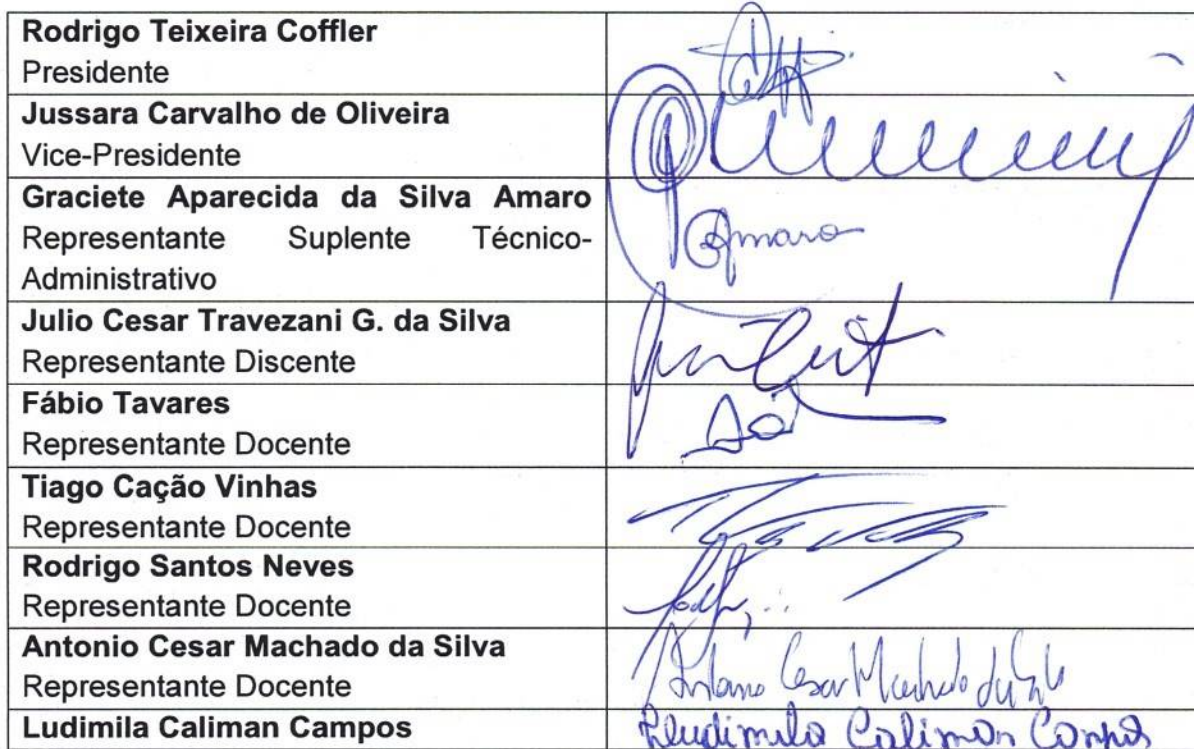 Rodrigo Teixeira Coffler
Presidente
Jussara Carvalho de Oliveira
Vice-Presidente
Graciete Aparecida da Silva Amaro
Representante Suplente Técnico-
Administrativo
Amaro
Julio Cesar Travezani G. da Silva
Representante Discente
Fábio Tavares
Representante Docente
Tiago Cação Vinhas
Representante Docente
Rodrigo Santos Neves
Representante Docente
Antonio Cesar Machado da Silva
Representante Docente
Antonio Cesar Machado da Silva
Ludimila Caliman Campos
Ludimila Caliman Campos